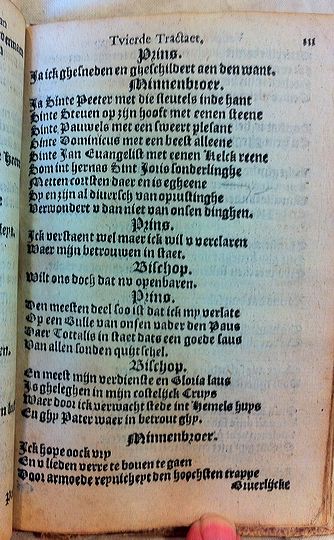 Tvierde Tractaet.
111
Prins.
Ja ick ghesneden en gheschildert aen den want.
Minnenbroer.
Ja Sinte Peeter met die sleutels inde hant
Sinte Steuen op zijn hooft met eenen steene
Sinte Pauwels met een sweert plesant
Sinte Dominicus met een beest alleene
Sinte Jan Euangelist met eenen kelck reene
Som int hernas Sint Joris sonderlinghe
Metten cortsten daer en is egheene
Sy en zijn al diuersch van opiustinghe
Verwondert v dan niet van onsen dinghen.
Prins.
Ick verstaent wel maer ick wil v verclaren
Waer mijn betrouwen in staet.
Bischop.
Wilt ons doch dat nv openbaren.
Prins.
Den meesten deel soo ist dat ick my verlate
Op een Bulle van onsen vader den Paus
Daer Tottalis in staet dats een goede saus
Van allen sonden quijtschel.
Bischop.
En meest mijn verdienste en Gloria laus
Is gheleghen in mijn costelijck Cruys
Waer door ick verwacht stede int Hemels huys
En ghy Pater waer in betrout ghy.
Minnenbroer.
Ick hope oock vry
En v lieden verre te bouen te gaen
Door armoede reynicheyt den hoochsten trappe
Giuerlijcke